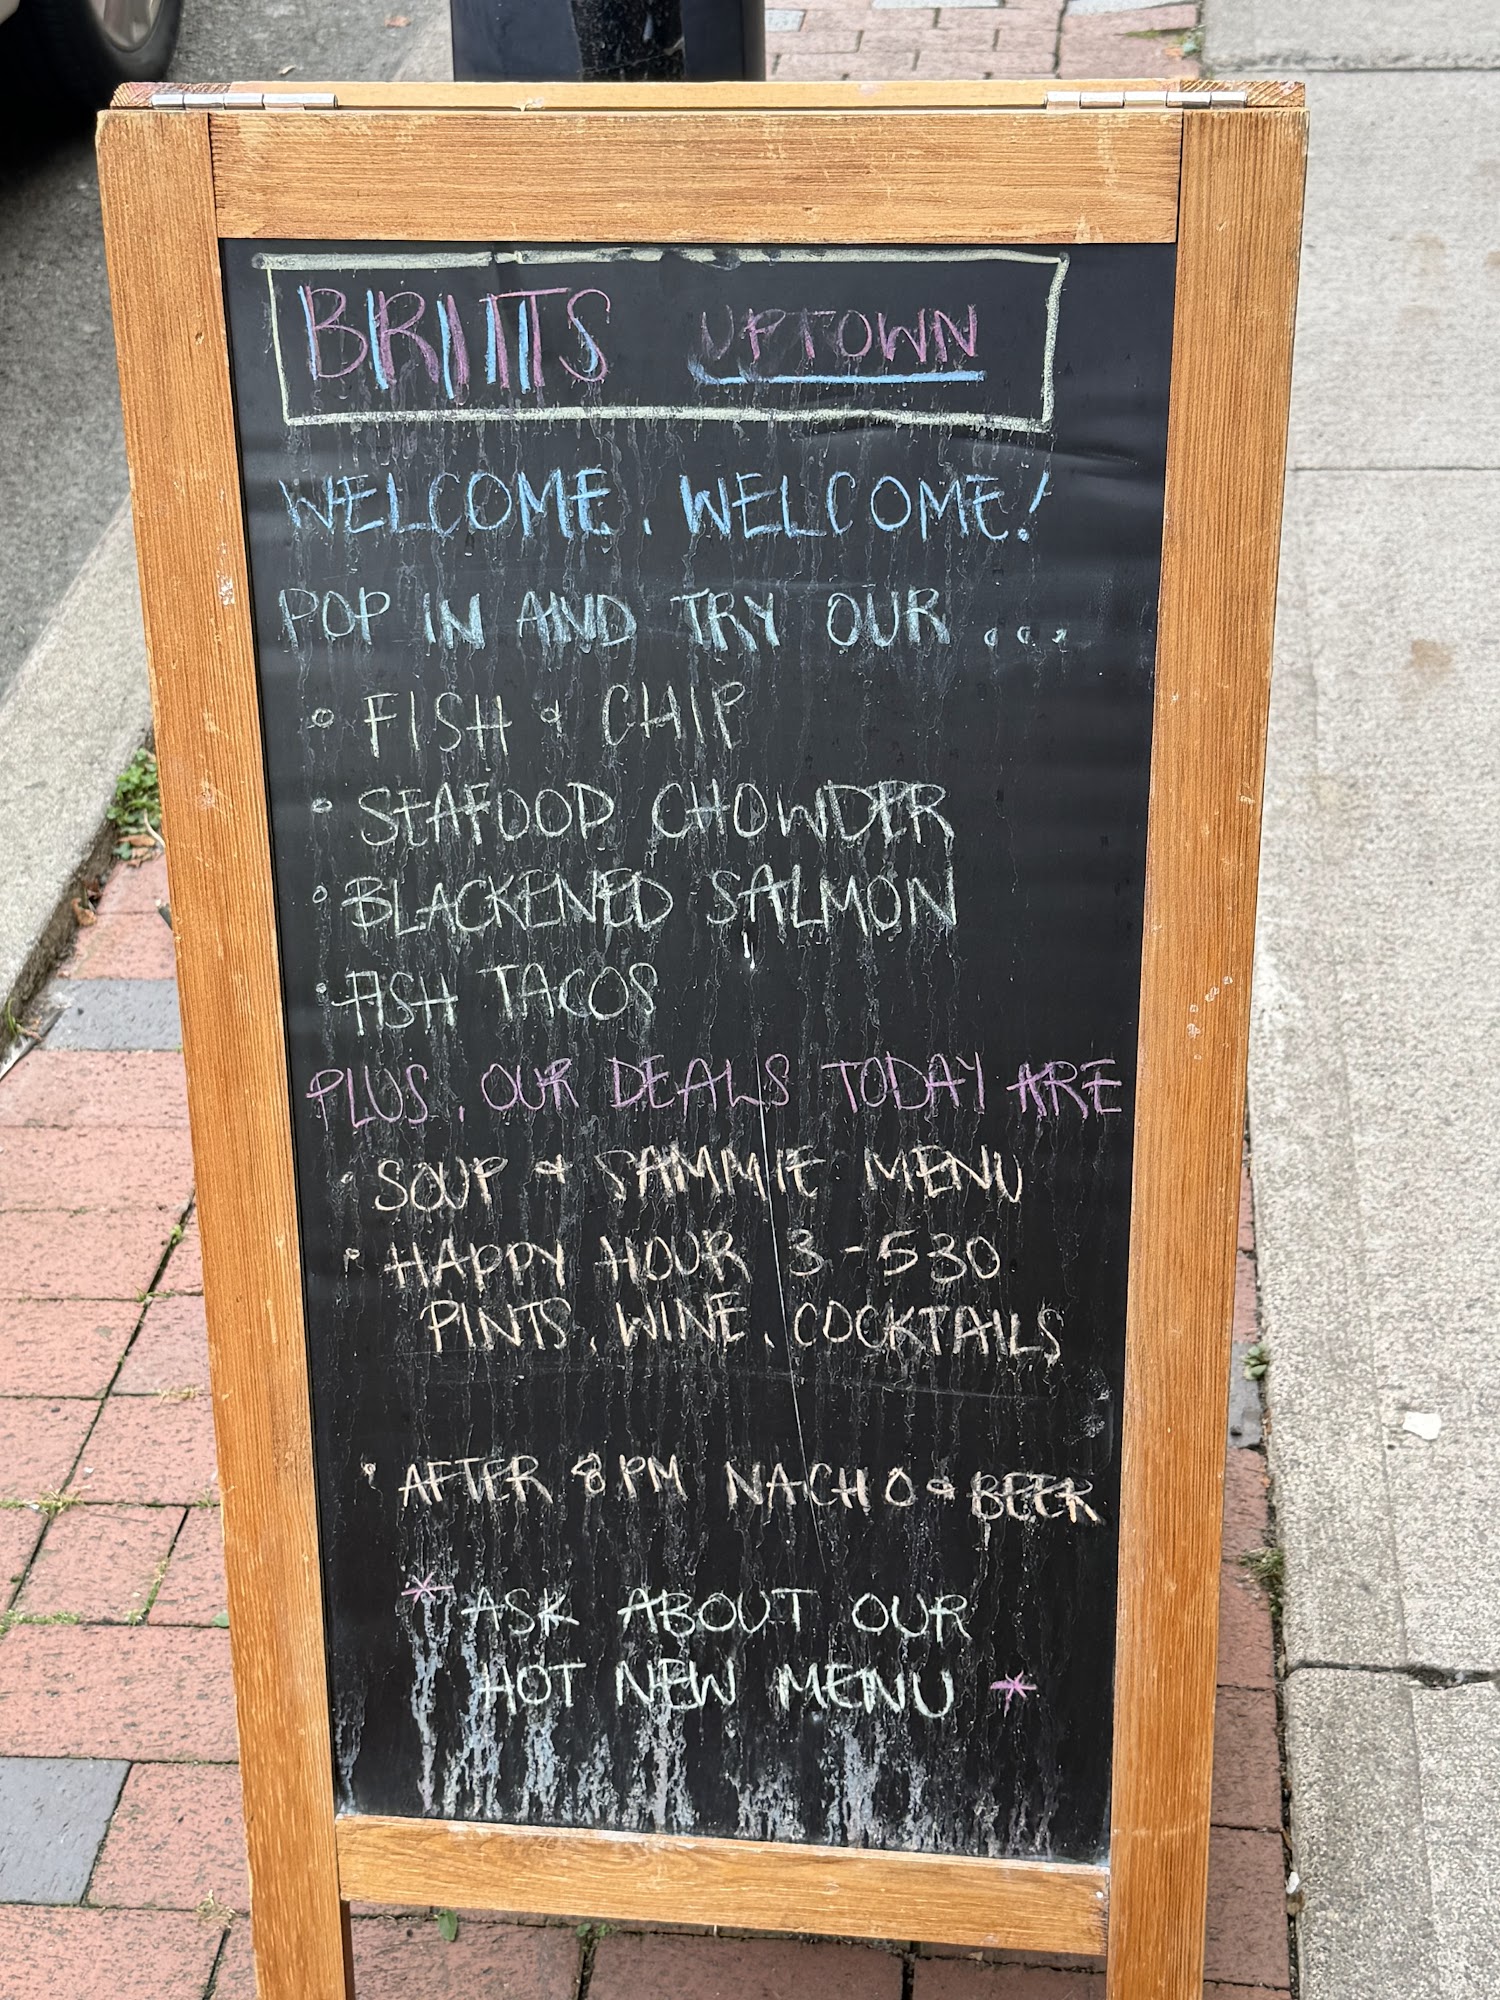 BRITTS UPTOWN
WELCOME, WELCOME!
POP IN AND TRY OUR ...
• FISH & CHIP
• SEAFOOD CHOWDER
• BLACKENED SALMON
• FISH TACOS
PLUS, OUR DEALS TODAY ARE
• SOUP & SAMMIE MENU
• HAPPY HOUR 3-530
PINTS, WINE, COCKTAILS
• AFTER 8PM NACHO & BEER
* ASK ABOUT OUR
HOT NEW MENU *